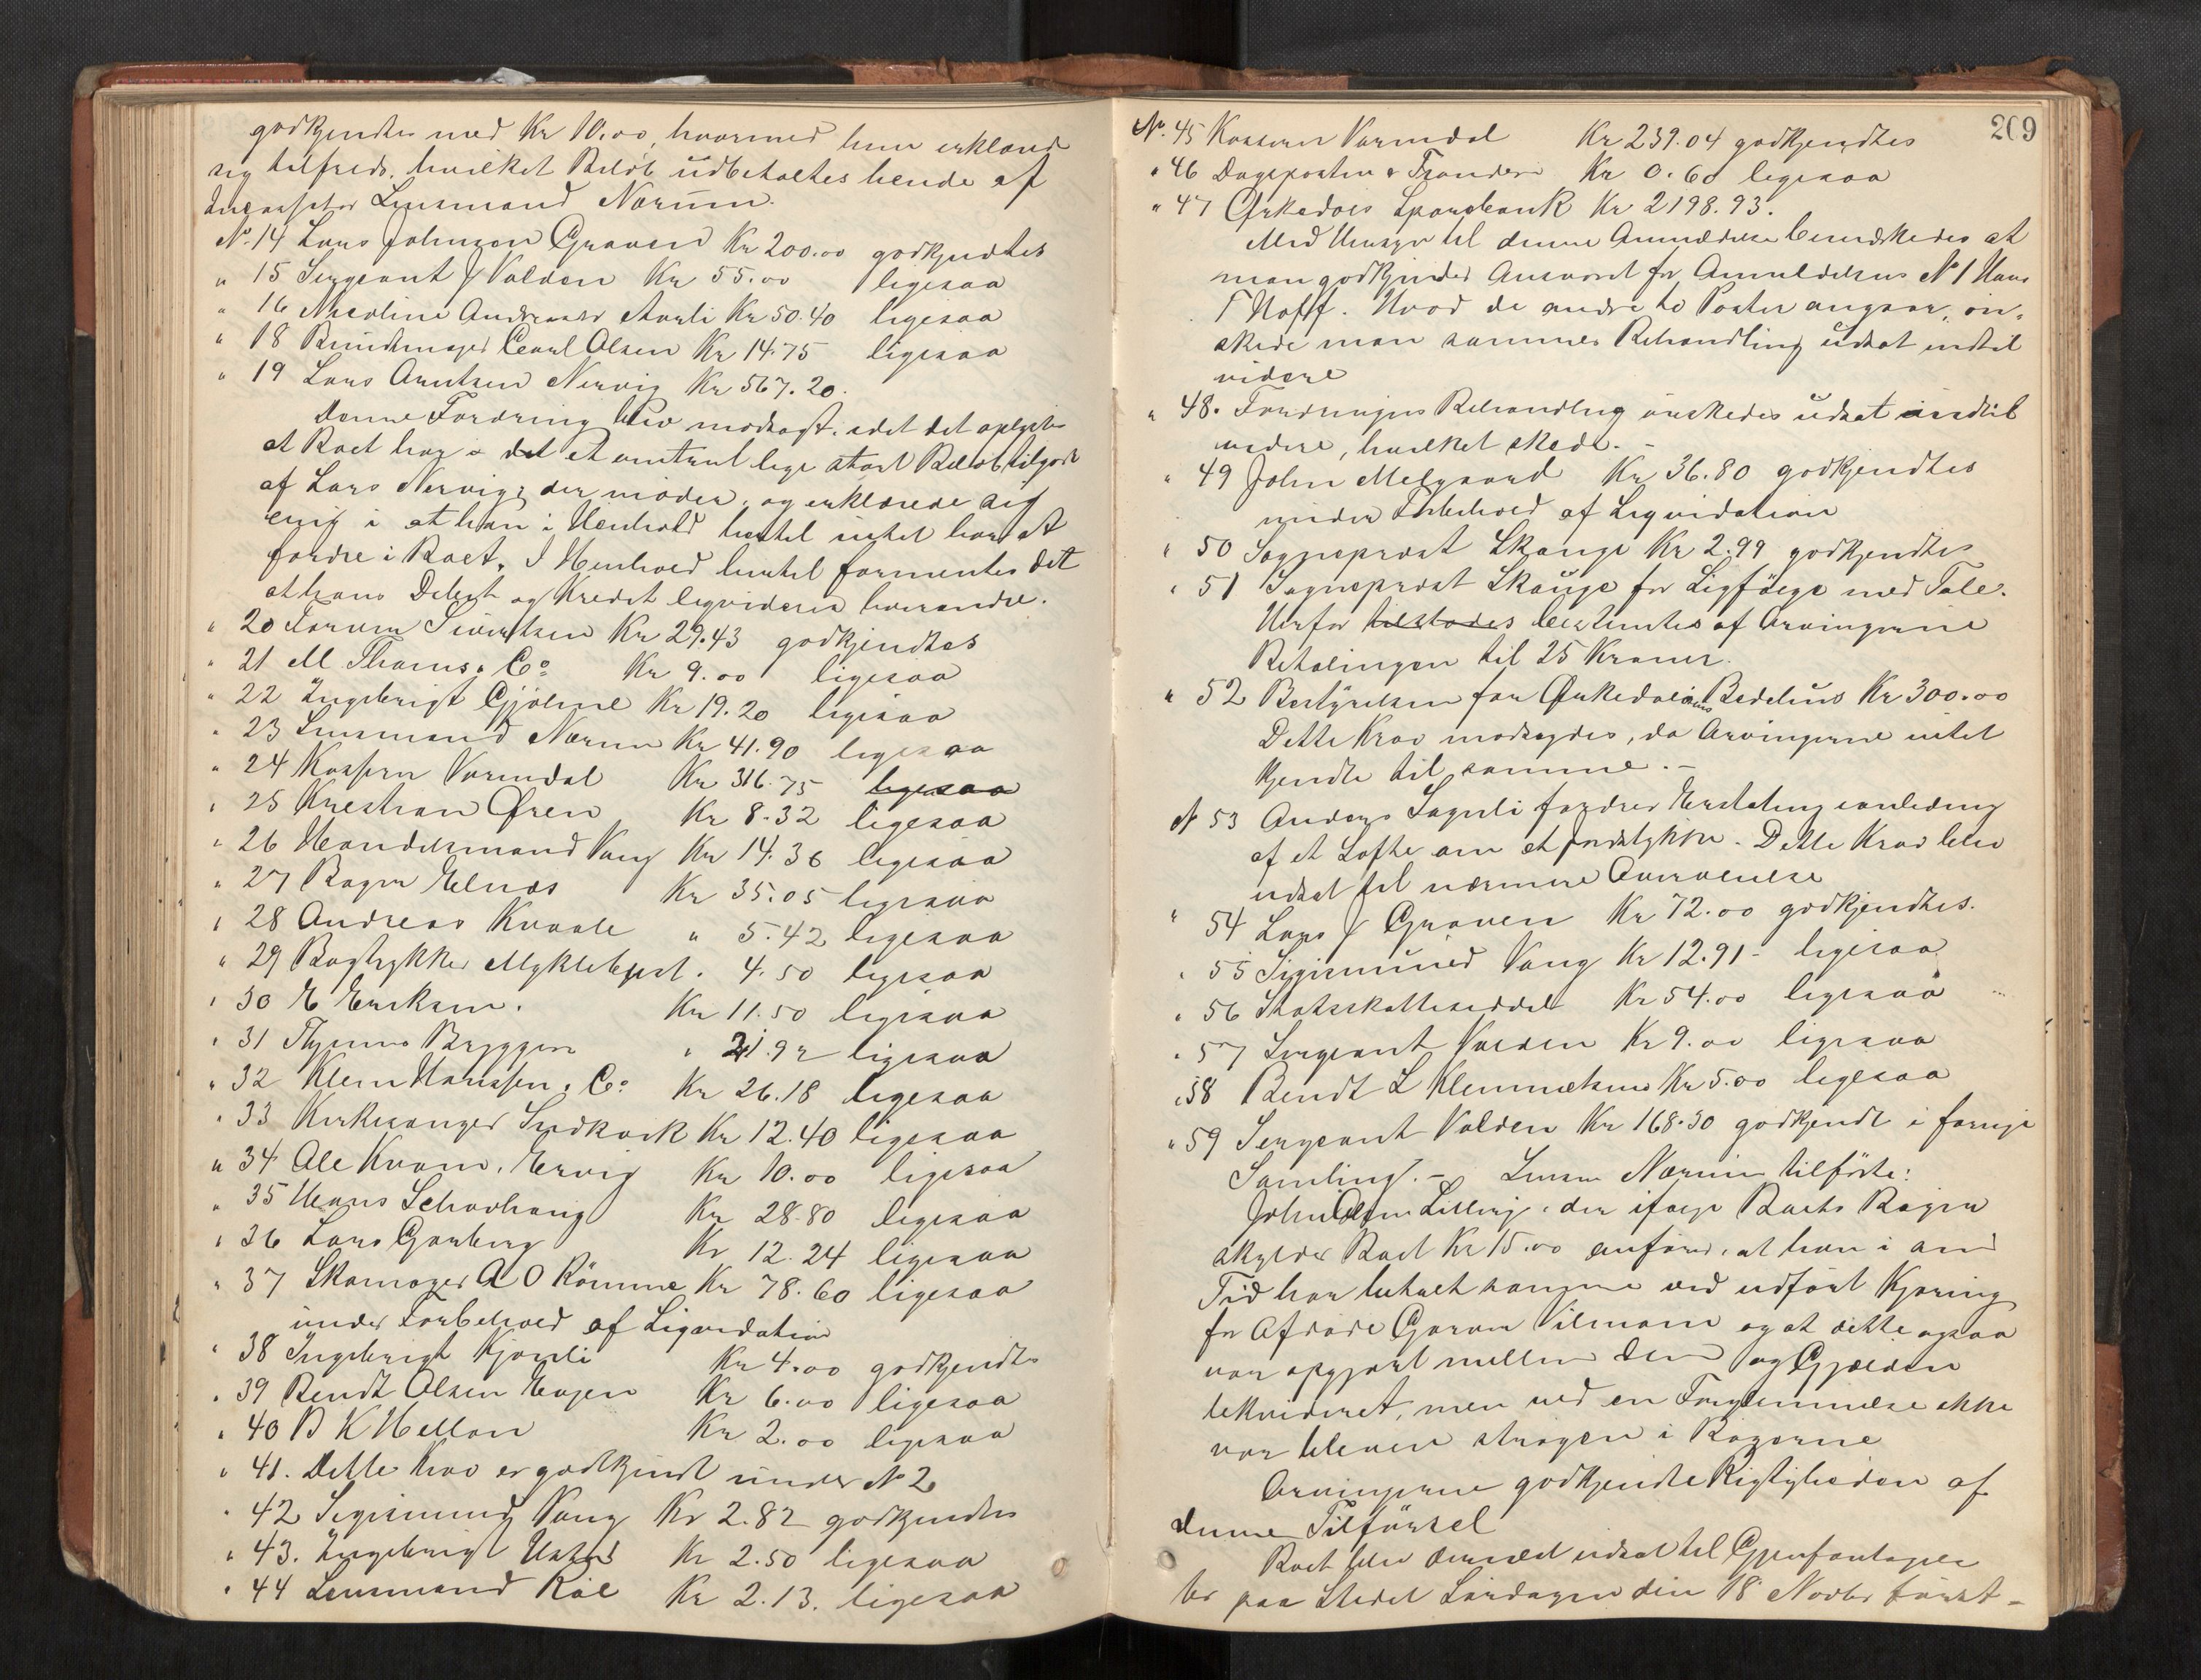 godkjendtes med Kr 10.00, hvormed hun erklærede
sig tilfreds, hvilket Beløb udbetaltes hende af
Incassator Lensmand Nærum.
No. 14 Lars Johnsen Graven Kr 200.00 godkjendtes
" 15 Sergeant J Volden Kr 55.00 ligesaa
" 16 Nicoline Andersdr Aarli Kr 50.40 ligesaa
" 18 Bundtmager Carl Olsen Kr 14.75 ligesaa
" 19 Lars Arntsen Nervig Kr 567.20.
Denne Fordring blev modsagt, idet det oplystes
at Boet har et omtrent lige stort Beløb tilgode
af Lars Nervig, der møder, og erklærede sig
enig i at han i Henhold hertil intet har at
fordre i Boet. I Henhold hertil formentes det
at hans Debet og Kredit ligviderer hverandre.
" 20 Farver Sivertsen Kr 29.43 godkjendtes
" 21 M. Thams & Co Kr 9.00 ligesaa
" 22 Ingebrigt Gjølme Kr 19.20 ligesaa
" 23 Lensmand Nærum Kr 41.90 ligesaa
" 24 Kasserer Varmdal Kr 316.75 ligesaa
" 25 Kristian Øren Kr 8.32 ligesaa
" 26 Handelsmand Vang Kr 14.36 ligesaa
" 27 Bager Elnæs Kr 35.05 ligesaa
" 28 Andreas Kvaale " 5.42 ligesaa
" 29 Bogtrykker Myklebust " 4.50 ligesaa
" 30 E Eriksen. Kr 11.50 ligesaa
" 31 Thjems Bryggeri " 21.92 ligesaa
" 32 Klem Hansen & Co Kr 26.18 ligesaa
" 33 Kirkesanger Kr 12.40 ligesaa
" 34 Ole Kvam, Ervig Kr 10.00 ligesaa
" 35 Hans Kr 28.80 ligesaa
" 36 Lars Garberg Kr 12.24 ligesaa
" 37 Skomager A O Rømme Kr 78.60 ligesaa
under Forbehold af Liqvidation
" 38 Ingebrigt Kjørli Kr 4.00 godkjendtes
" 39 Bendt Olsen Kr 6.00 ligesaa
" 40 B K Kr 2.00 ligesaa
" 41. Dette Krav er godkjendt under No 2
" 42 Sigismund Vang Kr 2.82 godkjendtes
" 43. Ingebrigt Kr 2.50 ligesaa
" 44 Lensmand Röe Kr 2.13. ligesaa
209
No. 45 Kasserer Varmdal Kr 239.04 godkjendtes
" 46 Dagsposten Kr 0.60 ligesaa
" 47 Ørkedals Sparebank Kr 2198.93.
Med Hensyn til denne Anmeldelse bemærkedes at
man godkjender Ansvaret for Anmeldelsens No 1 Hans
T Hoff. Hvad de andre to Poster angaar, øn-
skede man sammes Behandling udsat indtil
videre
" 48. Fordringens Behandling ønskedes udsat indtil
videre, hvilket skede. -
" 49 John Melgaard Kr 36.80 godkjendtes
under Forbehold af Liqvidation
" 50 Sogneprest Skauge Kr 2.99 godkjendtes
" 51 Sogneprest Skauge for Ligfølge med Tale.
Herfor tilstodes bestemtes af Arvingerne
Betalingen til 25 Kroner.
" 52 Bestyrelsen for Ørkedalens Bedehus Kr 300.00
Dette Krav modsagdes, da Arvingerne intet
kjendte til samme. -
No 53 Anders Sagnli fordrer Erstatning i anledning
af et Løfte om et Jordstykke. Dette Krav blev
udsat til nærmere Overveielse
" 54 Lars J Graven Kr 72.00 godkjendtes.
" 55 Sigismund Vang Kr 12.91 - ligesaa
" 56 Statsskatteseddel Kr 54.00 ligesaa
" 57 Sergeant Volden Kr 9.00 ligesaa
" 58 Bendt L Klemmetsen Kr 5.00 ligesaa
" 59 Sergeant Volden Kr 168.30 godkjendt i forrige
Samling. - Lensm Nærum tilførte:
John Olsen, der ifølge Boets Bøger
skylder Boet Kr 15.00 anfører, at han i sin
Tid har betalt samme ved udført Kjøring
for Afdøde Garver Vilmann og at dette ogsaa
var opgjort mellem dem og Gjælden
likvideret, men ved en Forglemmelse ikke
var bleven strøgen i Bøgerne
Arvingerne godkjendte Rigtigheden af
denne Tilførsel
Boet blev dernæst udsat til Gjenfortagel-
se paa Stedet Lørdagen den 18 Novbr først-